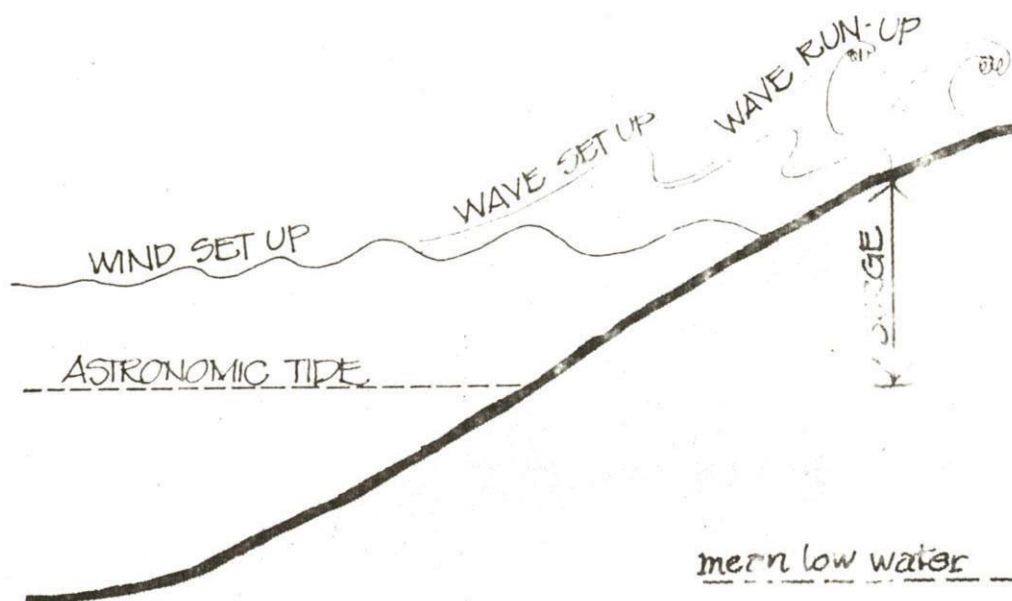 WAVE RUN-UP
WAVE SET UP
WIND SET UP
ASTRONOMIC TIDE
mean low water